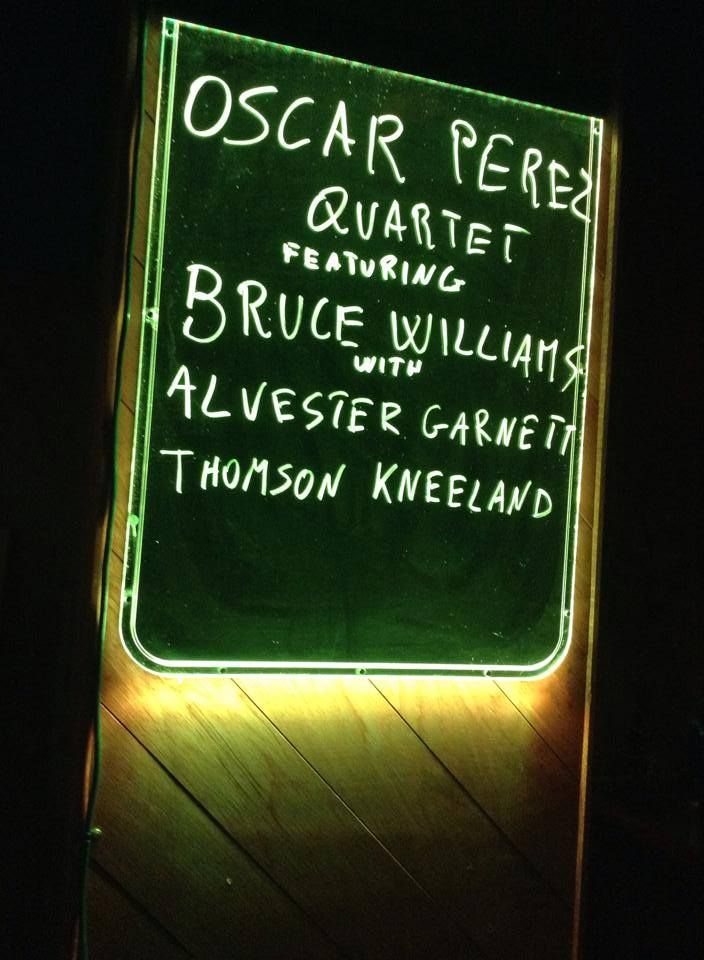 OSCAR PEREZ
QUARTET
FEATURING
BRUCE WILLIAMS
WITH
ALVESTER GARNETT
THOMSON KNEELAND